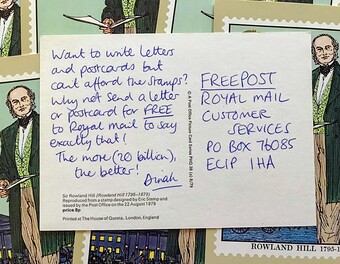 Want to write letters
and postcards but
can't afford the stamps?
Why not send a letter
or postcard for FREE
to Royal Mail to say
exactly that!
The more (20 billion),
the better!
Dinah
Sir Rowland Hill (Rowland Hill 1795-1879)
Reproduced from a stamp designed by Eric Stemp and
issued by the Post Office on the 22 August 1979
price 8p
Printed at The House of Questa, London, England
© A Post Office Picture Card Series PHQ 38 (c) 8/79
FREEPOST
ROYAL MAIL
CUSTOMER
SERVICES
PO BOX 76085
EC1P 1HA
ROWLAND HILL 1795-1